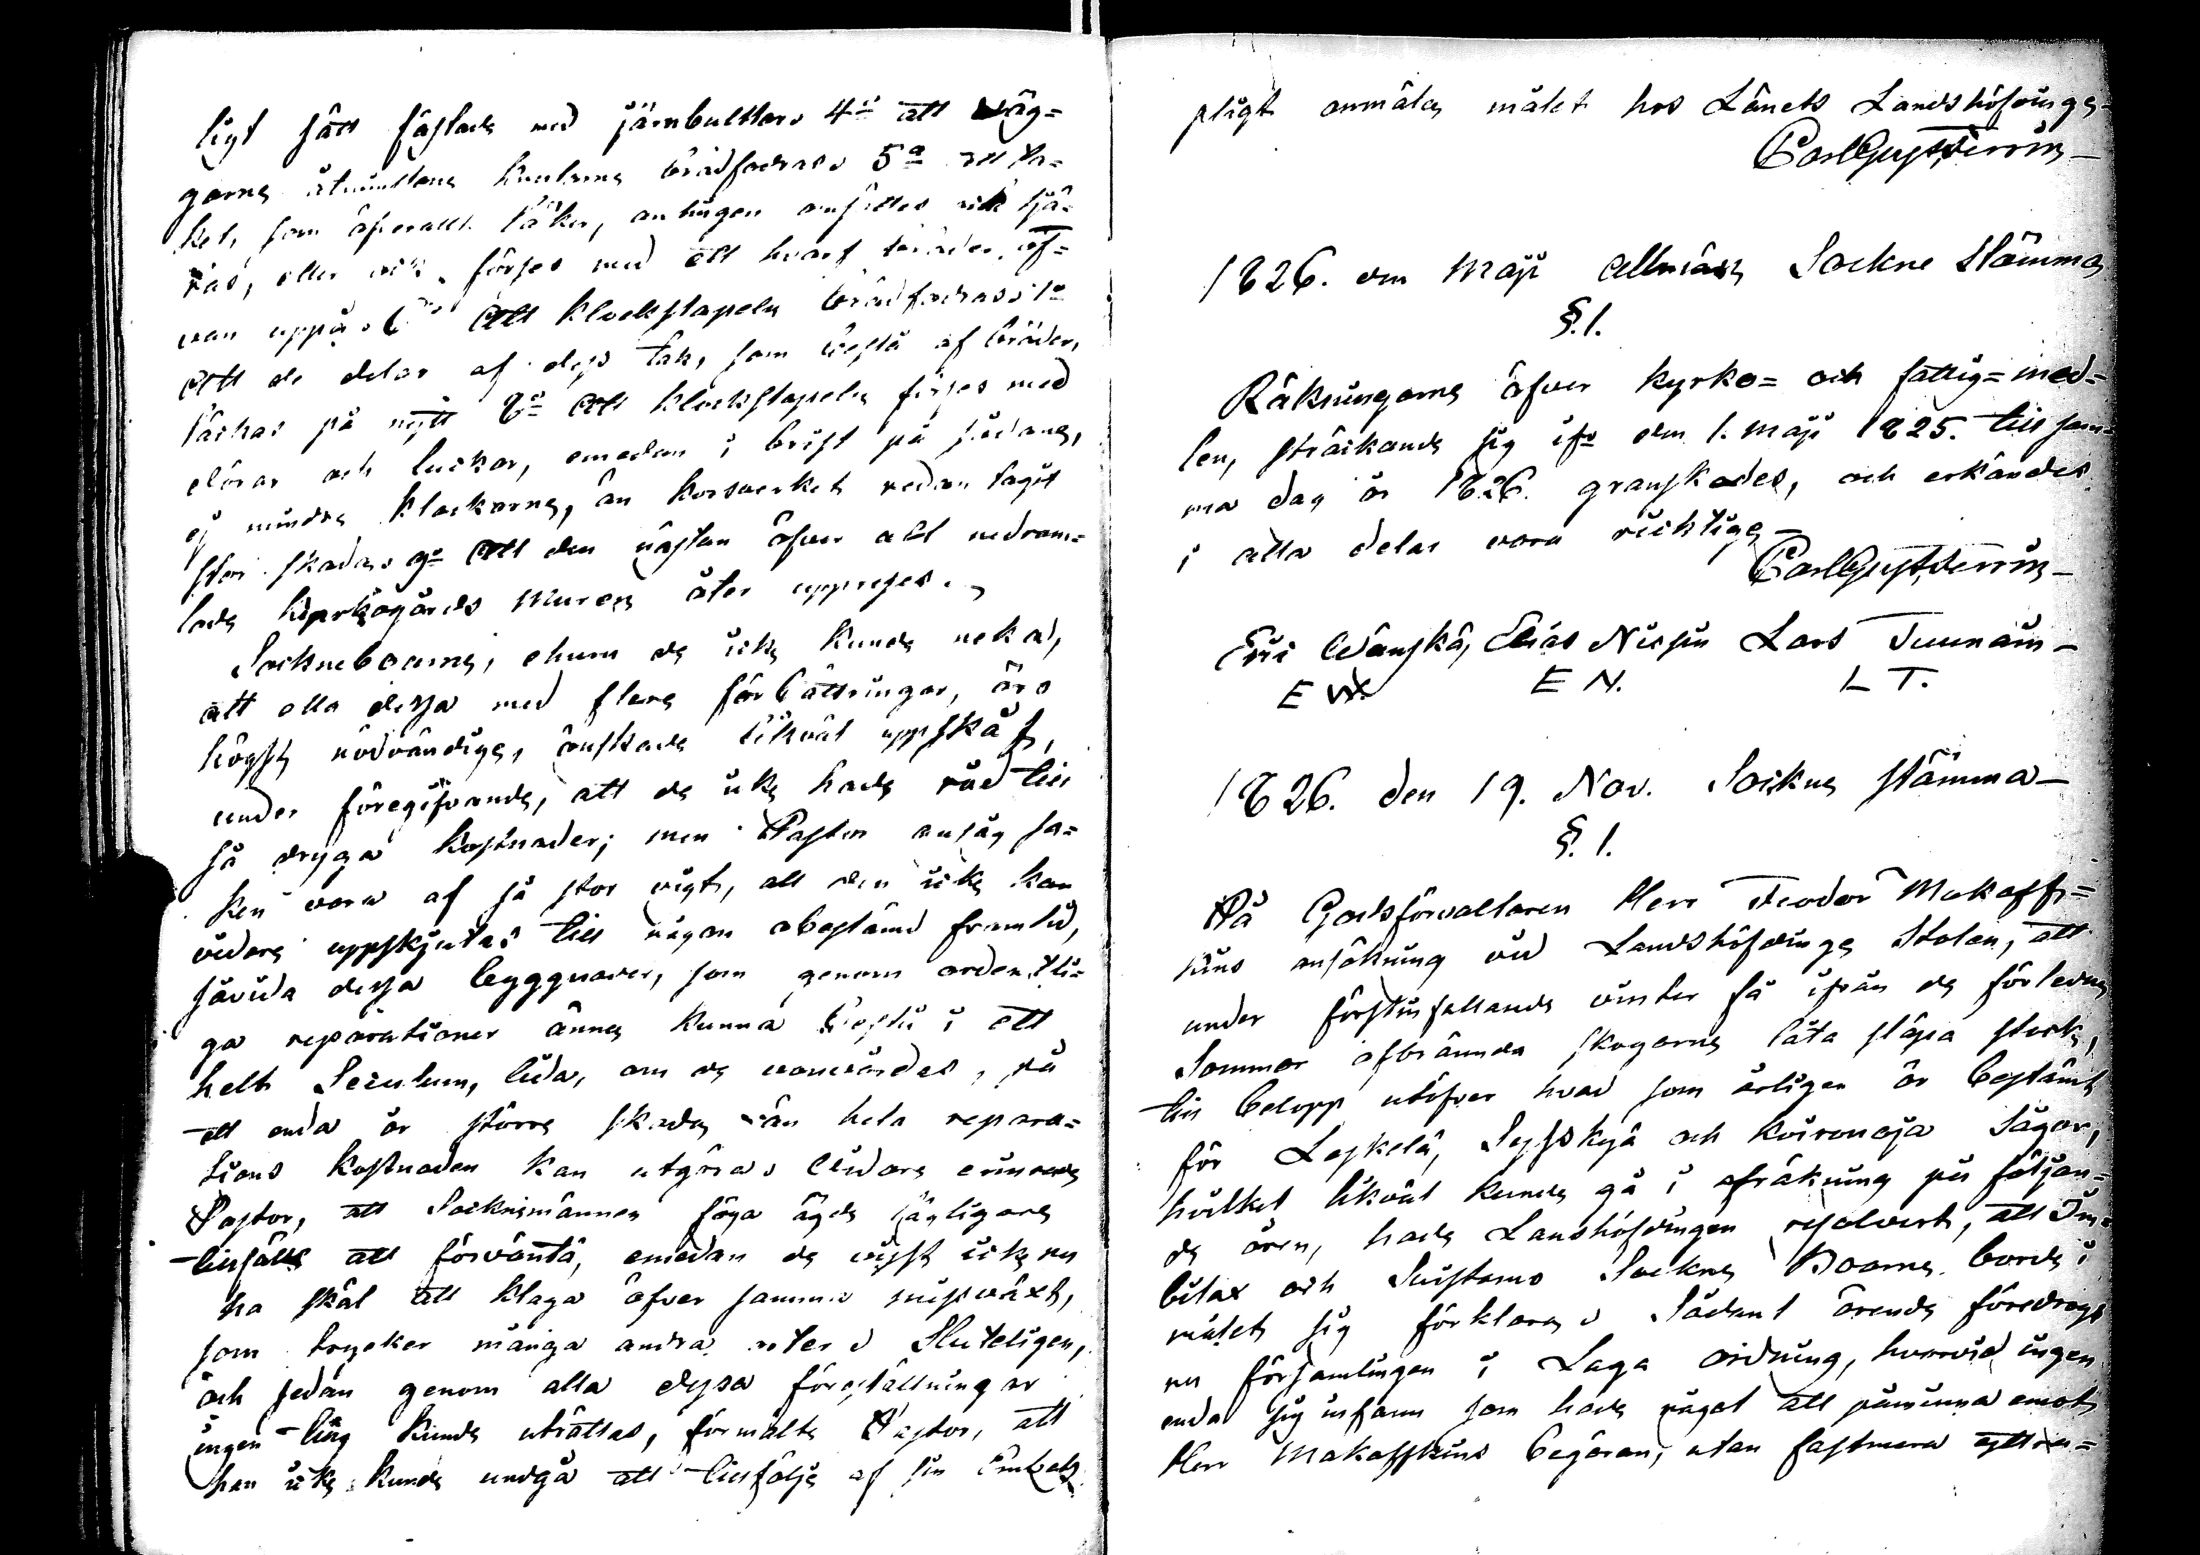 ligt sätt fästade med järnbultar. 4:o att väg=
garne utmed knutarne brädfodras. 5:o att ta=
ket, som öfverallt läker, antingen omsättes och tjä=
ras, eller ock förses med ett hvarf bräder of=
van uppå. 6:o Att klockstapeln brädfodras. 7:o
Att de delar af dess tak, som bestå af bräder,
täckas på nytt 8:o Att klockstapeln förses med
dörar och luckor, emedan i brist på sådane,
ej mindre klockorne, än korsverket redan tagit
stor skada. 9:o Att den nästan öfver allt nedram=
lade kyrkogårds muren åter uppreses.
Sockneboarne, ehuru de icke kunde neka,
att alla dessa med flera förbättringar, äro
högst nödvändige, önskade likväl uppskåf,
under föregifvande, att de icke hade råd till
så dryga kostnader; men Pastor ansåg sa=
ken vara af så stor vigt, att den icke kan
vidare uppskjutas till någon obestämd framtid,
såvida dessa byggnader, som genom ordentli=
ga reparationer ännu kunna bestå i ett
helt Seculum, lida, om de vanvårdas, på
ett enda år större skada än hela repara=
tions kostnaden kan utgöra. Vidare erinrade
Pastor, att Socknemännen föga ägde lägligare
tillfälle att förvänta, emedan de visst icke nu
ha skäl att klaga öfver samma missväxt,
som trycker många andra orter. Sluteligen,
och sedan genom alla dessa föreställningar
ingen ting kunde uträttas, förmälte Pastor, att
han icke kunde undgå att tillfölje af sin Embets
pligt anmäla målet hos Länets Landshöfdinge
Carl Gust Verrin
1826. om Maji allmän Sockne Stämma
§. 1.
Räkningarne öfver kyrko= och fattig=med=
len, sträckande sig ifr den 1. Maji 1825. till sam=
ma dag år 1826. granskades, och erkändes
i alla delar vara richtige
Carl Gust Verrin
Eric Wänskä, Elias Nissin Lars Tuunain
E W. E N. L T.
1826. den 19. Nov. Sockne stämma
§. 1.
På Godsförvaltaren Herr Feodor Makoffs=
kins ansökning vid Landshöfdinge Stolen, att
under förstinfallande vinter få ifrån de förledne
Sommar afbrännda skogarne låta släpa stock,
till belopp utöfver hvad som årligen är bestämt
för Leskelä, Syskyä och Koironoja Sågar,
hvilket likväl kunde gå i afräkning på följan=
de åren, hade Lanshöfdingen resolverat, att Im=
bilax och Suistamo Sockne Boarne borde i
målet sig förklara. Sådant ärende föredrogs
nu församlingen i Laga ordning, hvarvid ingen
enda sig infann som hade något att påminna emot
Herr Makoffskins begäran, utan fastmera yttra=